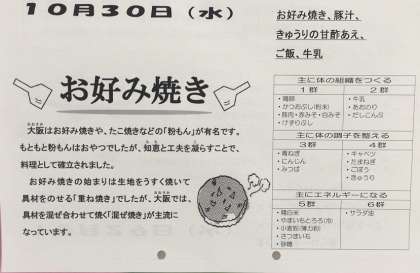 10月30日(水)
お好み焼き、豚汁、
きゅうりの甘酢あえ、
ご飯、牛乳
お好み焼き
大阪はお好み焼きや、たこ焼きなどの「粉もん」が有名です。
もともと粉もんはおやつでしたが、知恵と工夫を凝らすことで、
料理として確立されました。
お好み焼きの始まりは生地をうすく焼いて
具材をのせる「重ね焼き」でしたが、大阪では、
具材を混ぜ合わせて焼く「混ぜ焼き」が主流に
なっています。
主に体の組織をつくる
1群 2群
・鶏卵 ・牛乳
・かつおぶし(粉末) ・あおのり
・豚肉・赤みそ・白みそ ・だしこんぶ
・けずりぶし
主に体の調子を整える
3群 4群
・青ねぎ ・キャベツ
・にんじん ・たまねぎ
・みつば ・ごぼう
・きゅうり
主にエネルギーになる
5群 6群
・精白米 ・サラダ油
・やまいもとろろ(冷)
・小麦粉(薄力粉)
・さつまいも
・砂糖